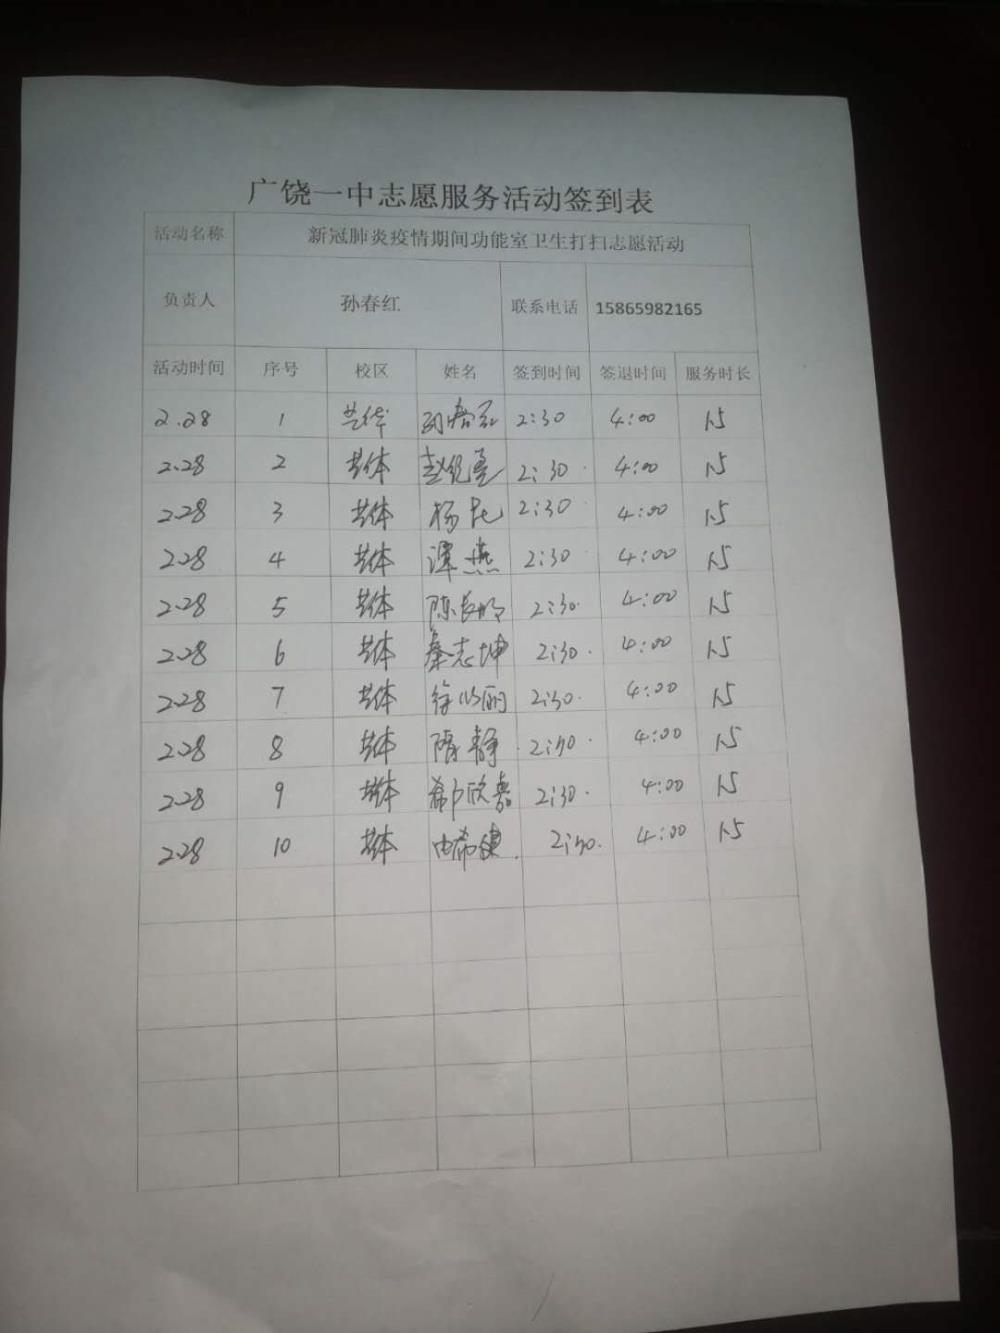 广饶一中志愿服务活动签到表
活动名称 新冠肺炎疫情期间功能室卫生打扫志愿活动
负责人 孙春红 联系电话 15865982165
活动时间 序号 校区 姓名 签到时间 签退时间 服务时长
2.28 1 艺体 孙春红 2:30 4:00 1.5
2.28 2 艺体 2:30 4:00 1.5
2.28 3 艺体 2:30 4:00 1.5
2.28 4 艺体 谭燕 2:30 4:00 1.5
2.28 5 艺体 2:30 4:00 1.5
2.28 6 艺体 秦志坤 2:30 4:00 1.5
2.28 7 艺体 2:30 4:00 1.5
2.28 8 艺体 隋静 2:30 4:00 1.5
2.28 9 艺体 2:30 4:00 1.5
2.28 10 艺体 2:30 4:00 1.5